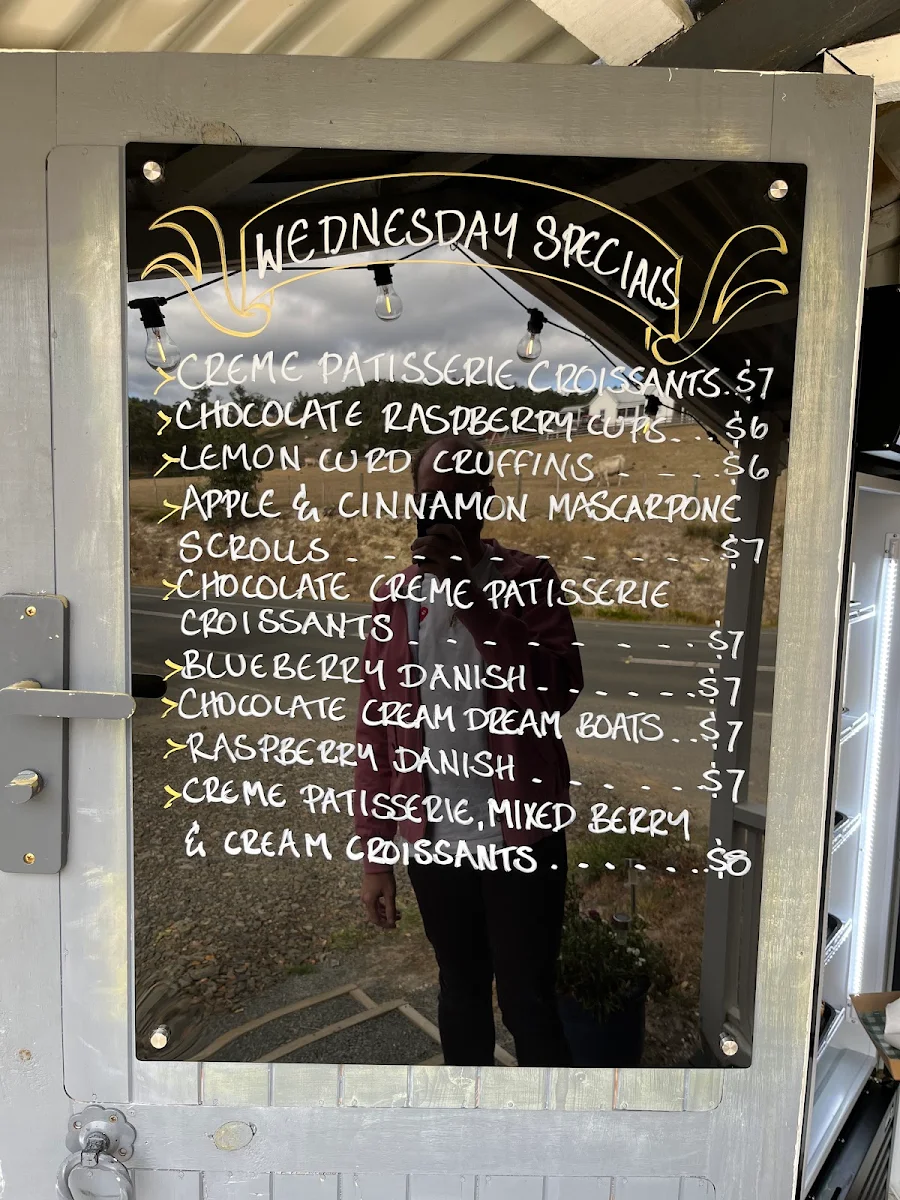 WEDNESDAY SPECIALS
>CREME PATISSERIE CROISSANTS..$7
>CHOCOLATE RASPBERRY CUPS...$6
>LEMON CURD CRUFFINS - - - $6
>APPLE & CINNAMON MASCARPONE
SCROLLS - - - - - - - - - - $7
>CHOCOLATE CREME PATISSERIE
CROISSANTS - - - - - - . . . $7
>BLUEBERRY DANISH - - - - - . . $7
>CHOCOLATE CREAM DREAM BOATS...$7
>RASPBERRY DANISH - - - - - . . $7
>CREME PATISSERIE, MIXED BERRY
& CREAM CROISSANTS . . . . . . . $8